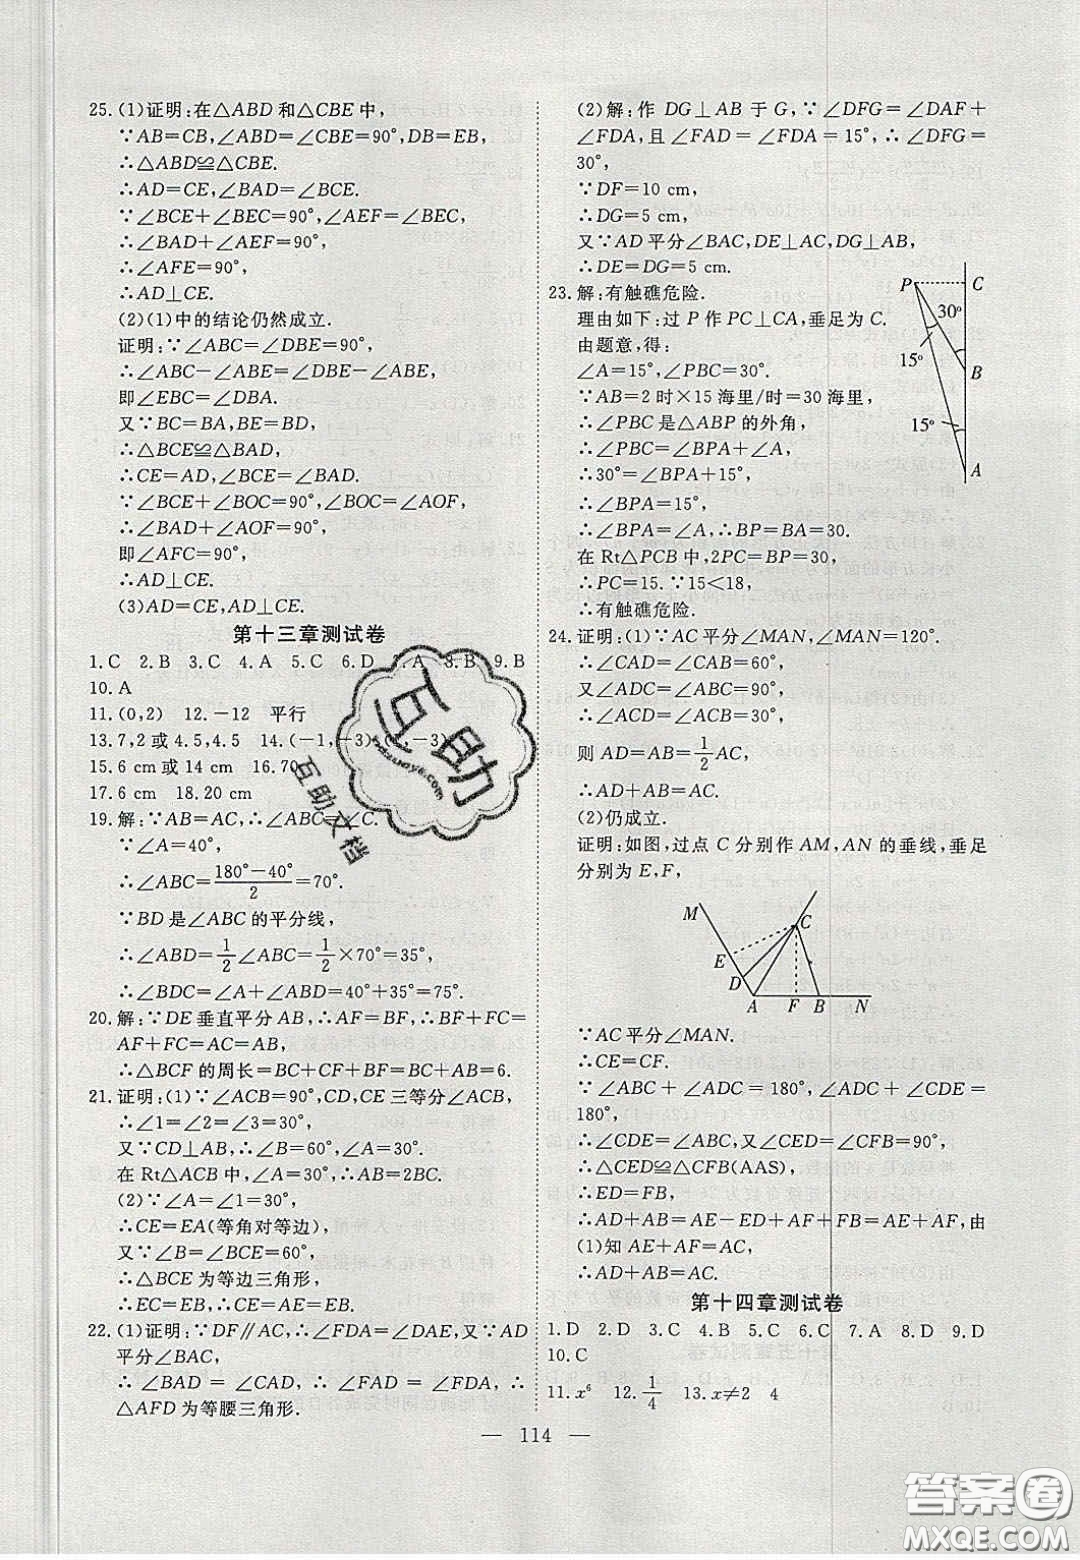 25.(1)证明:在△ABD和△CBE中,
∵AB=CB,∠ABD=∠CBE=90°,DB=EB,
∴△ABD≌△CBE.
∴AD=CE,∠BAD=∠BCE.
∵∠BCE+∠BEC=90°,∠AEF=∠BEC,
∴∠BAD+∠AEF=90°,
∴∠AFE=90°,
∴AD⊥CE.
(2)(1)中的结论仍然成立.
证明:∵∠ABC=∠DBE=90°,
∴∠ABC-∠ABE=∠DBE-∠ABE,
即∠EBC=∠DBA.
又∵BC=BA,BE=BD,
∴△BCE≌△BAD,
∴CE=AD,∠BCE=∠BAD.
∵∠BCE+∠BOC=90°,∠BOC=∠AOF,
∴∠BAD+∠AOF=90°,
即∠AFC=90°,
∴AD⊥CE.
(3)AD=CE,AD⊥CE.
第十三章测试卷
1.C 2.B 3.C 4.A 5.C 6.D 7.A 8.B 9.B
10.A
11.(0,2) 12.-12 平行
13.7,2或4.5,4.5 14.(-1,-3) ,-3)
15.6 cm或14 cm 16.70
17.6 cm 18.20 cm
19.解:∵AB=AC,∴∠ABC=∠C.
∵∠A=40°,
∴∠ABC=\frac{180°-40°}{2}=70°.
∵BD是∠ABC的平分线,
∴∠ABD=\frac{1}{2}∠ABC=\frac{1}{2}×70°=35°,
∴∠BDC=∠A+∠ABD=40°+35°=75°.
20.解:∵DE垂直平分AB,∴AF=BF,∴BF+FC=
AF+FC=AC=AB,
∴△BCF的周长=BC+CF+BF=BC+AB=6.
21.证明:(1)∵∠ACB=90°,CD,CE三等分∠ACB,
∴∠1=∠2=∠3=30°,
又∵CD⊥AB,∴∠B=60°,∠A=30°.
在Rt△ACB中,∠A=30°,∴AB=2BC.
(2)∵∠A=∠1=30°,
∴CE=EA(等角对等边),
又∵∠B=∠BCE=60°,
∴△BCE为等边三角形,
∴EC=EB,∴CE=AE=EB.
22.(1)证明:∵DF∥AC,∴∠FDA=∠DAE,又∵AD
平分∠BAC,
∴∠BAD=∠CAD,∴∠FAD=∠FDA,∴
△AFD为等腰三角形.
(2)解:作DG⊥AB于G,∵∠DFG=∠DAF+
∠FDA,且∠FAD=∠FDA=15°,∴∠DFG=
30°,
∵DF=10 cm,
∴DG=5 cm,
又∵AD平分∠BAC,DE⊥AC,DG⊥AB,
∴DE=DG=5 cm.
23.解:有触礁危险.
理由如下:过P作PC⊥CA,垂足为C.
由题意,得:
∠A=15°,∠PBC=30°.
∵AB=2时×15海里/时=30海里,
∵∠PBC是△ABP的外角,
∴∠PBC=∠BPA+∠A,
∴30°=∠BPA+15°,
∴∠BPA=15°,
∴∠BPA=∠A,∴BP=BA=30.
在Rt△PCB中,2PC=BP=30,
∴PC=15.∵15<18,
∴有触礁危险.
P
C
30°
15°
B
15°
A
24.证明:(1)∵AC平分∠MAN,∠MAN=120°.
∴∠CAD=∠CAB=60°,
又∠ADC=∠ABC=90°,
∴∠ACD=∠ACB=30°,
则AD=AB=\frac{1}{2}AC,
∴AD+AB=AC.
(2)仍成立.
证明:如图,过点C分别作AM,AN的垂线,垂足
分别为E,F,
M
C
E
D
A F B N
∵AC平分∠MAN.
∴CE=CF.
∵∠ABC+∠ADC=180°,∠ADC+∠CDE=
180°,
∴∠CDE=∠ABC,又∠CED=∠CFB=90°,
∴△CED≌△CFB(AAS),
∴ED=FB,
∴AD+AB=AE-ED+AF+FB=AE+AF,由
(1)知AE+AF=AC,
∴AD+AB=AC.
第十四章测试卷
1.D 2.D 3.C 4.B 5.C 6.C 7.A 8.D 9.D
10.C
11.x⁶ 12.\frac{1}{4} 13.x≠2 4
— 114 —
互助
huzuoye.com
互助文档
答案圈
MXQE.COM